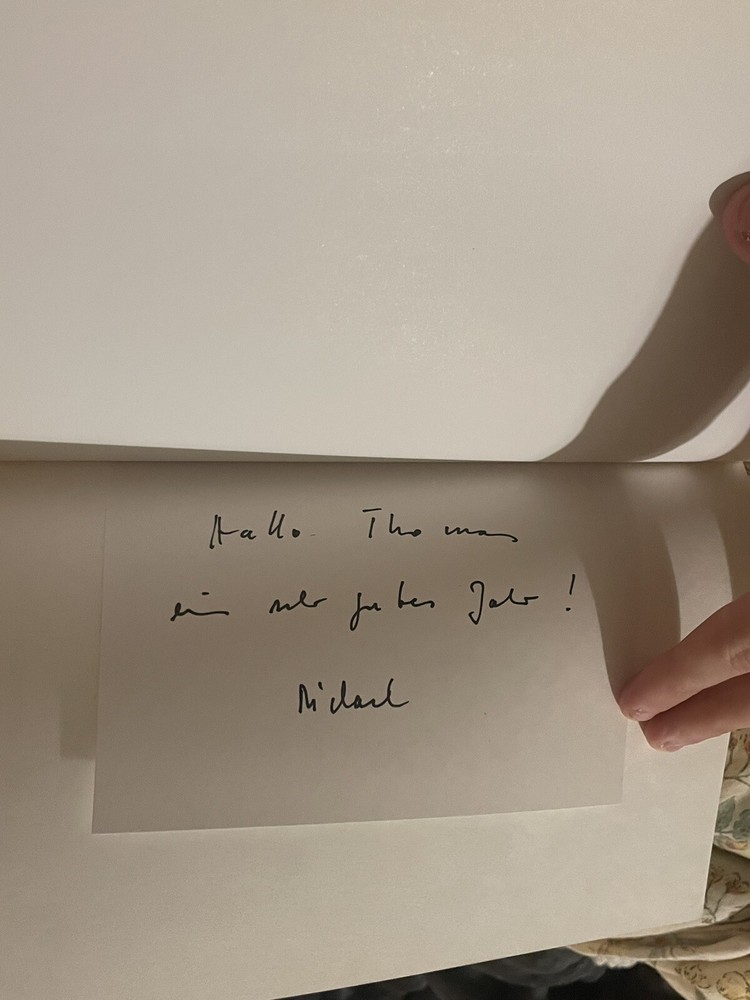 Hallo Thomas
ein sehr gutes Jahr!
Michael